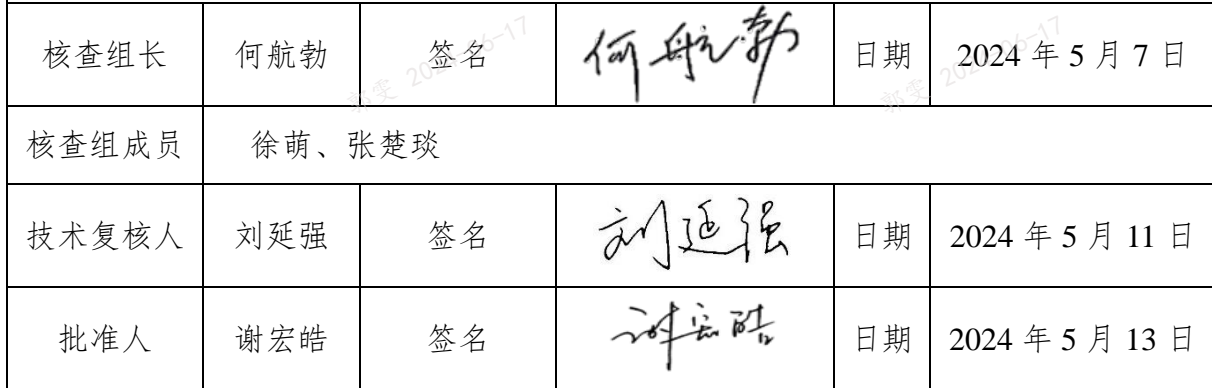 核查组长 何航勃 签名 何航勃 日期 2024 年 5 月 7 日
核查组成员 徐萌、张楚琰
技术复核人 刘延强 签名 刘延强 日期 2024 年 5 月 11 日
批准人 谢宏皓 签名 谢宏皓 日期 2024 年 5 月 13 日